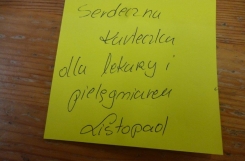 Serdeczna
Karteczka
dla lekarzy i
pielęgniarek
Listopad